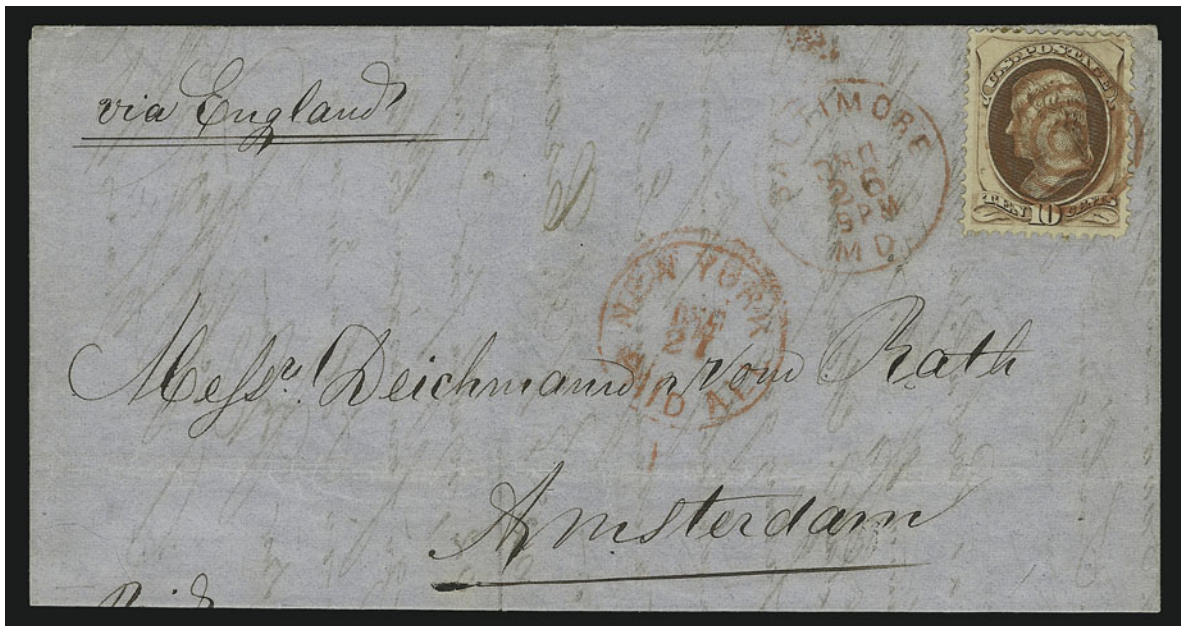 via England
U.S. POSTAGE
TEN 10 CENTS
BALTIMORE
DEC
26
9 PM
MD.
NEW YORK
DEC
27
PAID ALL
Messrs. Deichmann & Vom Rath
Amsterdam